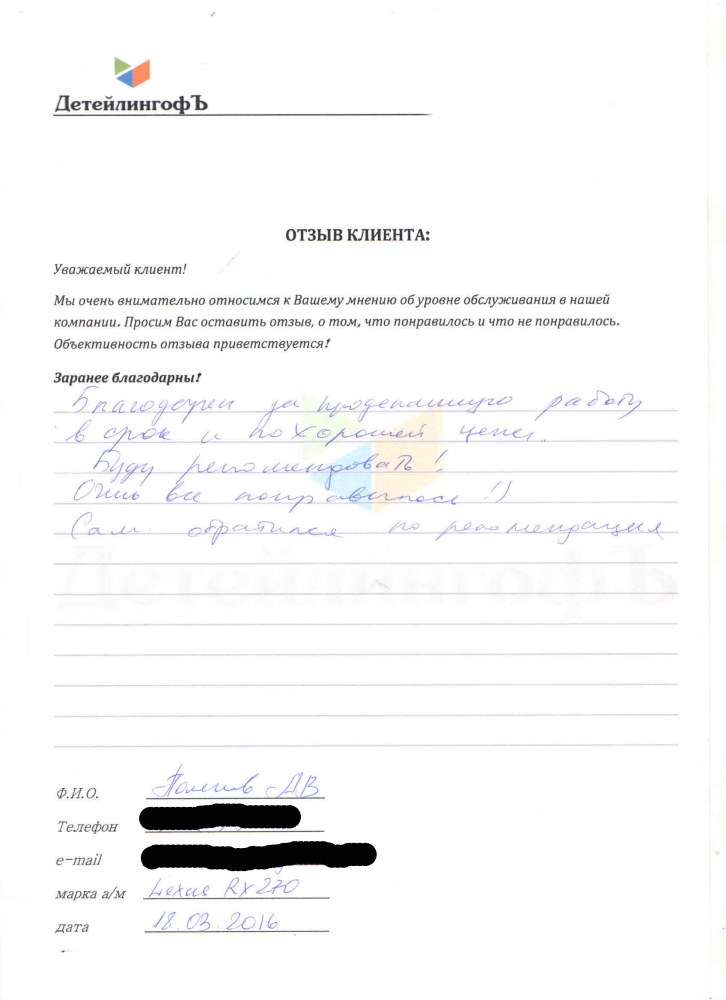 ДетейлингофЪ
ОТЗЫВ КЛИЕНТА:
Уважаемый клиент!
Мы очень внимательно относимся к Вашему мнению об уровне обслуживания в нашей
компании. Просим Вас оставить отзыв, о том, что понравилось и что не понравилось.
Объективность отзыва приветствуется!
Заранее благодарны!
Благодарен за проделанную работу
в срок и по хорошей цене.
Буду рекомендовать!
Очень все понравилось!)
Сам обратился по рекомендация
ДетейлингофЪ
Ф.И.О. АВ
Телефон
e-mail
марка а/м Lexus RX270
дата 18.03.2016